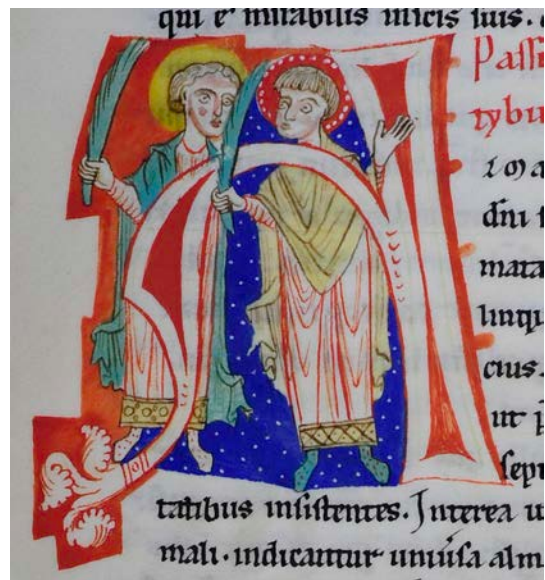 qui e mirabilis in scis suis.
Passi
tybu
dni
mata
linqu
cius.
ut p
sept
tatibus insistentes. Interea u
mali. indicantur univsa alm